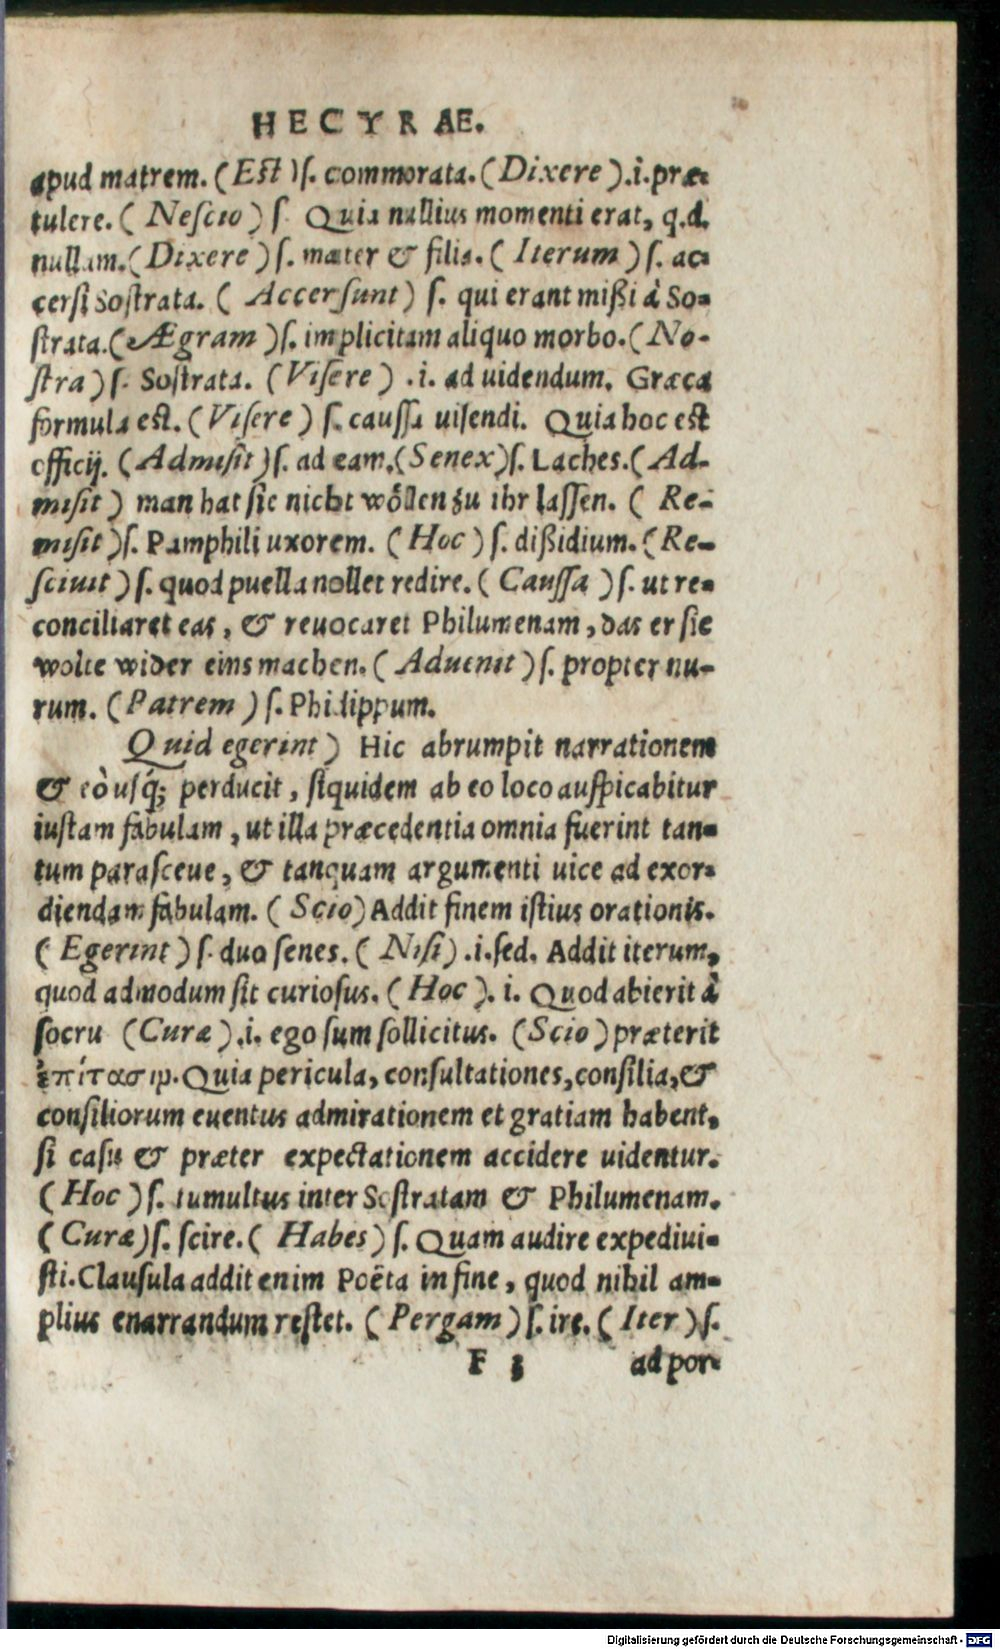 HECYRAE.
apud matrem. (Est) ſ. commorata. (Dixere) .i. præ-
tulere. (Neſcio) ſ. Quia nullius momenti erat, q.d.
nullam. (Dixere) ſ. mater & filia. (Iterum) ſ. ac-
cerſi Soſtrata. (Accerſunt) ſ. qui erant mißi à So-
ſtrata. (Ægram) ſ. implicitam aliquo morbo. (No-
ſtra) ſ. Soſtrata. (Viſere) .i. ad uidendum. Græca
formula est. (Viſere) ſ. cauſſa uiſendi. Quia hoc est
officij. (Admiſit) ſ. ad eam. (Senex) ſ. Laches. (Ad-
miſit) man hat ſie nicht wöllen zu ihr laſſen. (Re-
miſit) ſ. Pamphili uxorem. (Hoc) ſ. dißidium. (Re-
ſciuit) ſ. quod puella nollet redire. (Cauſſa) ſ. ut re-
conciliaret eas, & reuocaret Philumenam, das er ſie
wolte wider eins machen. (Aduenit) ſ. propter nu-
rum. (Patrem) ſ. Phidippum.
Quid egerint) Hic abrumpit narrationem
& eò uſq́; perducit, ſiquidem ab eo loco auſpicabitur
iuſtam fabulam, ut illa præcedentia omnia fuerint tan-
tum paraſceue, & tanquam argumenti uice ad exor-
diendam fabulam. (Scio) Addit finem iſtius orationis.
(Egerint) ſ. duo ſenes. (Niſi) .i. ſed. Addit iterum,
quod admodum ſit curioſus. (Hoc). i. Quod abierit à
ſocru (Curæ) .i. ego ſum ſollicitus. (Scio) præterit
ἐπίτασιμ. Quia pericula, conſultationes, conſilia, &
conſiliorum euentus admirationem et gratiam habent,
ſi caſu & præter expectationem accidere uidentur.
(Hoc) ſ. tumultus inter Soſtratam & Philumenam.
(Curæ) ſ. ſcire. (Habes) ſ. Quam audire expediui-
ſti. Clauſula addit enim Poëta in fine, quod nihil am-
plius enarrandum reſtet. (Pergam) ſ. ire. (Iter) ſ.
F 3 ad por-
Digitalisierung gefördert durch die Deutsche Forschungsgemeinschaft - DFG